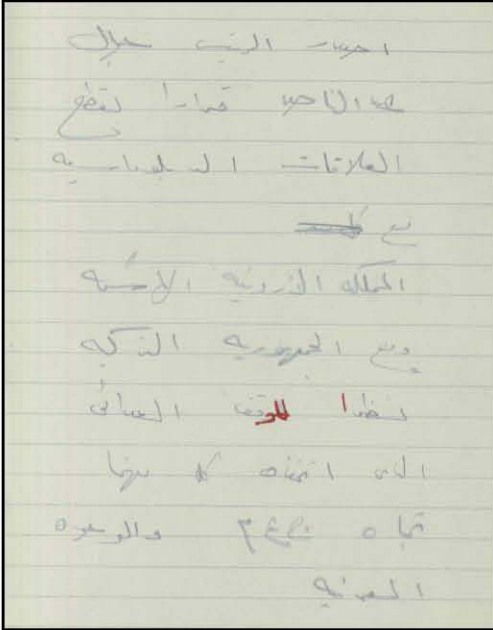 اصدر الرئيس جمال
عبد الناصر قرارا بقطع
العلاقات الدبلوماسية
مع
المملكه الأردنية الهاشمية
ومع الجمهورية التركيه
نظرا للموقف العدائى
الذى اتخذه كل منهما
تجاه ج ع م والوحدة
العربية